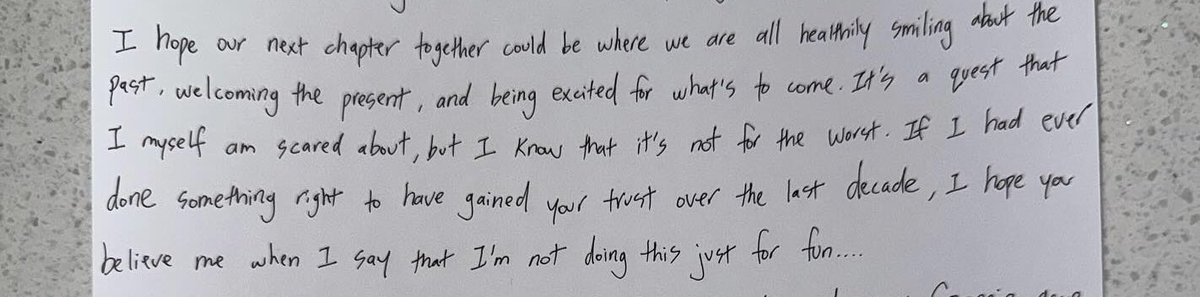 I hope our next chapter together could be where we are all healthily smiling about the
past, welcoming the present, and being excited for what's to come. It's a quest that
I myself am scared about, but I know that it's not for the worst. If I had ever
done something right to have gained your trust over the last decade, I hope you
believe me when I say that I'm not doing this just for fun....